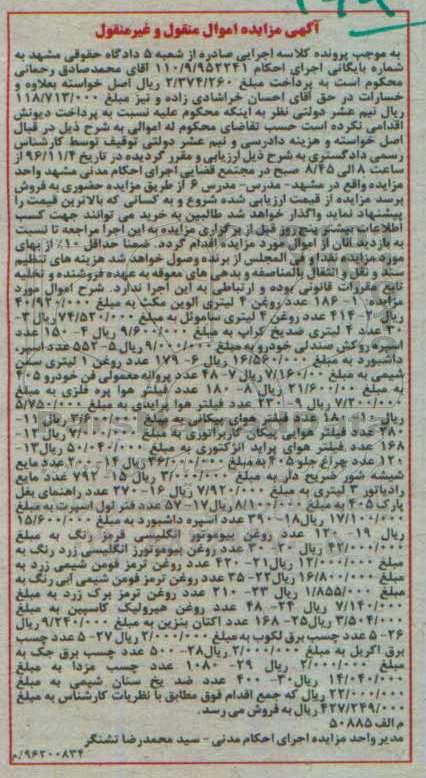 آگهی مزایده اموال منقول و غیرمنقول
به موجب پرونده کلاسه اجرایی صادره از شعبه ۵ دادگاه حقوقی مشهد به
شماره بایگانی اجرای احکام ۱۱۰/۹/۹۵۲۲۴۱ آقای محمدصادق رحمانی
محکوم است به پرداخت مبلغ ۲/۳۷۴/۲۶۰ ریال اصل خواسته بعلاوه و
خسارات در حق آقای احسان خراشادی زاده و نیز مبلغ ۱۱۸/۷۱۳/۰۰۰
ریال نیم عشر دولتی نظر به اینکه محکوم علیه نسبت به پرداخت دیونش
اقدامی نکرده است حسب تقاضای محکوم له اموالی به شرح ذیل در قبال
اصل خواسته و هزینه دادرسی و نیم عشر دولتی توقیف توسط کارشناس
رسمی دادگستری به شرح ذیل ارزیابی و مقرر گردیده در تاریخ ۹۶/۱۱/۴ از
ساعت ۸ الی ۸/۴۵ صبح در مجتمع قضایی اجرای احکام مدنی مشهد واحد
مزایده واقع در مشهد- مدرس- مدرس ۶ از طریق مزایده حضوری به فروش
برسد مزایده از قیمت ارزیابی شده شروع و به کسانی که بالاترین قیمت را
پیشنهاد نماید واگذار خواهد شد طالبین به خرید می توانند جهت کسب
اطلاعات بیشتر پنج روز قبل از برگزاری مزایده به این اجرا مراجعه تا نسبت
به بازدید آنان از اموال مورد مزایده اقدام گردد. ضمنا حداقل ۱۰٪ از بهای
مورد مزایده نقدا و فی المجلس از برنده وصول خواهد شد هزینه های تنظیم
سند و نقل و انتقال بالمناصفه و بدهی های معوقه به عهده فروشنده و تخلیه
تابع مقررات قانونی بوده و ارتباطی به این اجرا ندارد. شرح اموال مورد
مزایده: ۱- ۱۸۶ عدد روغن ۴ لیتری الوین مکث به مبلغ ۴۰/۹۲۰/۰۰۰
ریال ۲- ۴۱۴ عدد روغن ۴ لیتری ساموئل به مبلغ ۷۴/۵۲۰/۰۰۰ ریال ۳-
۳۰ عدد ۴ لیتری ضدیخ کراب به مبلغ ۹/۶۰۰/۰۰۰ ریال ۴- ۱۵۰ عدد
اسپره روکش صندلی خودرو به مبلغ ۹/۰۰۰/۰۰۰ ریال ۵- ۵۵۲ عدد اسپره
داشبورد به مبلغ ۱۶/۵۶۰/۰۰۰ ریال ۶- ۱۷۹ عدد روغن ۱ لیتری سمن
شیمی به مبلغ ۷/۱۶۰/۰۰۰ ریال ۷- ۴۸ عدد پروانه معمولی فن خودرو ۴۰۵
به مبلغ ۲۱/۶۰۰/۰۰۰ ریال ۸- ۱۸۰ عدد فیلتر هوا پره فلزی به مبلغ
۷/۲۰۰/۰۰۰ ریال ۹- ۲۳۰ عدد فیلتر هوا پرایدی به مبلغ ۵/۷۵۰/۰۰۰
ریال ۱۰- ۱۸۰ عدد فیلتر هوای پیکانی به مبلغ ۳/۶۰۰/۰۰۰ ریال ۱۱-
۲۸۰ عدد فیلتر هوایی پیکان کاربراتوری به مبلغ ریال ۱۲-
۱۶۸ عدد فیلتر هوای پراید انژکتوری به مبلغ ۵۰/۰۴۰/۰۰۰ ریال ۱۳-
۱۲۰ عدد چراغ جلو ۴۰۵ به مبلغ ۴۶/۰۰۰/۰۰۰ ریال ۱۴- ۲۰۰ عدد مایع
شیشه شور ضریح دار به مبلغ ۳/۰۰۰/۰۰۰ ریال ۱۵- ۷۹۲ عدد مایع
رادیاتور ۳ لیتری به مبلغ ۷/۹۲۰/۰۰۰ ریال ۱۶- ۲۷۰ عدد راهنمای بغل
پارک ۴۰۵ به مبلغ ۸/۱۰۰/۰۰۰ ریال ۱۷- ۵۷ عدد فنر لول اسپرت به مبلغ
۱۷/۱۰۰/۰۰۰ ریال ۱۸- ۳۹۰ عدد اسپره داشبورد به مبلغ ۱۵/۶۰۰/۰۰۰
ریال ۱۹- ۱۲۰ عدد روغن بیوموتور انگلیسی قرمز رنگ به مبلغ
۴۲/۰۰۰/۰۰۰ ریال ۲۰- ۳۰ عدد روغن بیوموتورز انگلیسی زرد رنگ به
مبلغ ۱۲/۰۰۰/۰۰۰ ریال ۲۱- ۴۲۰ عدد روغن ترمز فومن شیمی زرد به
مبلغ ۱۶/۸۰۰/۰۰۰ ریال ۲۲- ۳۵ عدد روغن ترمز فومن شیمی آبی رنگ به
مبلغ ۱/۸۵۵/۰۰۰ ریال ۲۳- ۲۱۰ عدد روغن ترمز برک زرد به مبلغ
۷/۱۴۰/۰۰۰ ریال ۲۴- ۴۸ عدد روغن هیرولیک کاسپین به مبلغ
۳/۵۰۴/۰۰۰ ریال ۲۵- ۱۶۸ عدد اکتان بنزین به مبلغ ۹/۲۴۰/۰۰۰ ریال
۲۶- ۵ عدد چسب برق لکوب به مبلغ ۲/۰۰۰/۰۰۰ ریال ۲۷- ۵ عدد چسب
برق اکریل به مبلغ ۲/۰۰۰/۰۰۰ ریال ۲۸- ۵۰۰ عدد چسب برق جک به
مبلغ ۲/۰۰۰/۰۰۰ ریال ۲۹- ۱۰۸۰ عدد چسب مزدا به مبلغ
۱۴/۰۴۰/۰۰۰ ریال ۳۰- ۴۰۰ عدد ضد یخ سنان شیمی به مبلغ
۲۲/۰۰۰/۰۰۰ ریال که جمع اقدام فوق مطابق با نظریات کارشناس به مبلغ
۴۲۷/۲۴۹/۰۰۰ ریال به فروش می رسد.
م الف ۵۰۸۸۵
مدیر واحد مزایده اجرای احکام مدنی - سید محمدرضا تشنگر
۹۶۲۰۰۸۳۴/م